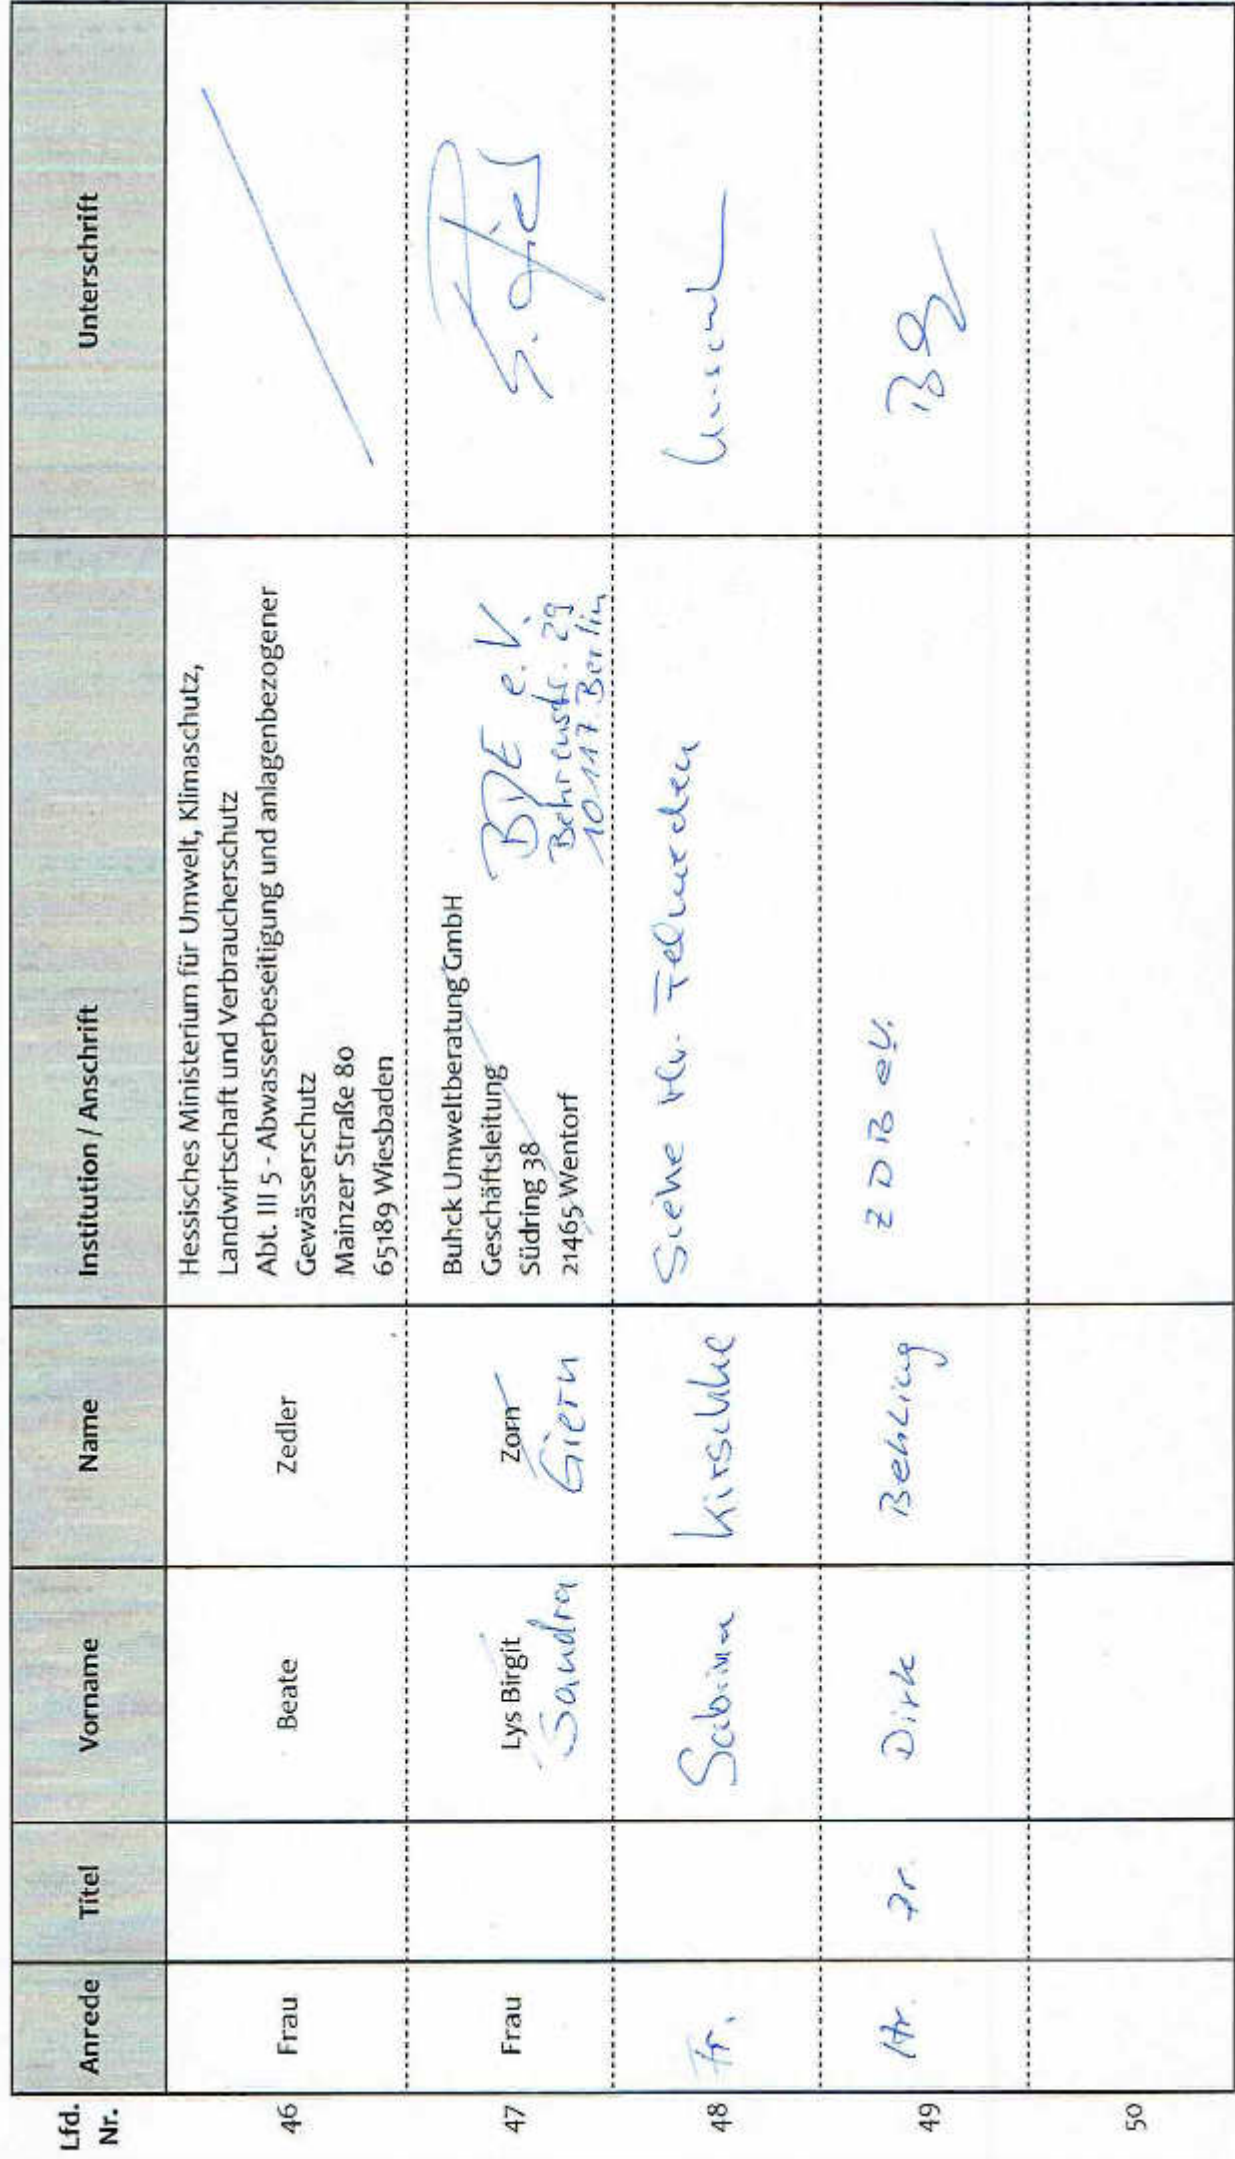 Lfd. Nr. Anrede Titel Vorname Name Institution / Anschrift Unterschrift
46 Frau Beate Zedler
Hessisches Ministerium für Umwelt, Klimaschutz,
Landwirtschaft und Verbraucherschutz
Abt. III 5 - Abwasserbeseitigung und anlagenbezogener
Gewässerschutz
Mainzer Straße 80
65189 Wiesbaden
47 Frau Lys Birgit Zorn
Sandra Giern
Buhck Umweltberatung GmbH
Geschäftsleitung
Südring 38
21465 Wentorf
BDE e.V.
Behrenstr. 29
10117 Berlin
48 Fr. Sabrina Kirschke Siehe Hr.
49 Hr. Dr. Dirk Behling ZDB e.V.
50